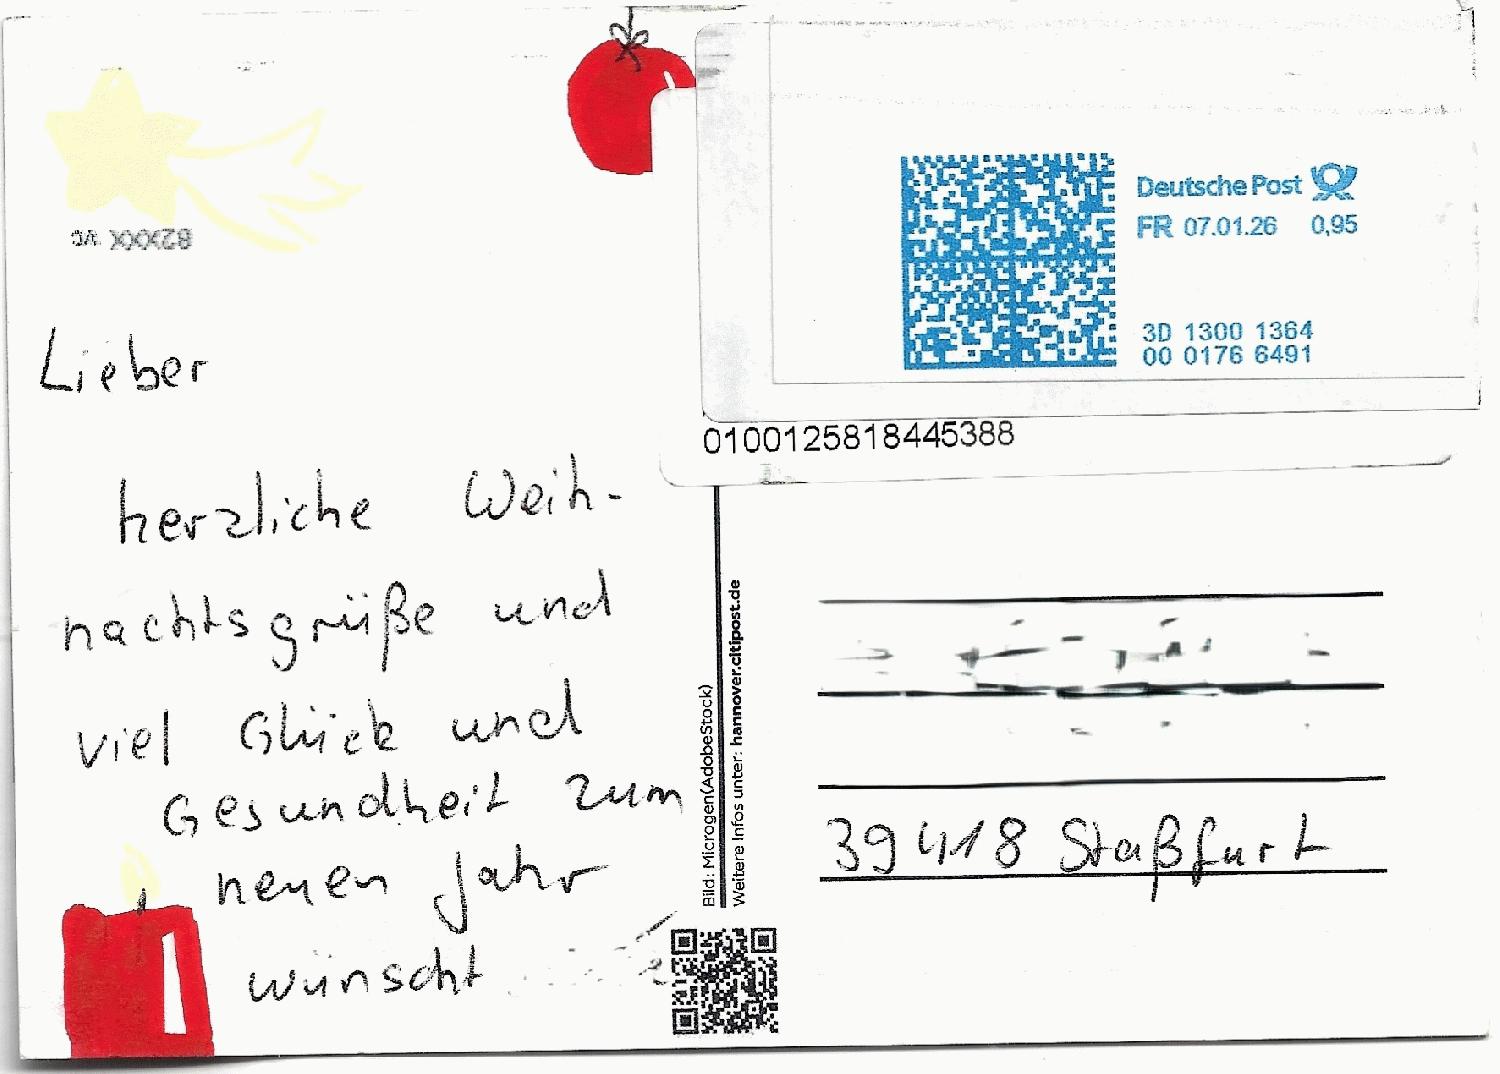 Deutsche Post
FR 07.01.26 0,95
3D 1300 1364
00 0176 6491
0100125818445388
82XXX VC
Lieber
herzliche Weih-
nachtsgrüße und
viel Glück und
Gesundheit zum
neuen Jahr
wünscht
Bild: Microgen(AdobeStock)
Weitere Infos unter: hannover.citipost.de
39418 Staßfurt